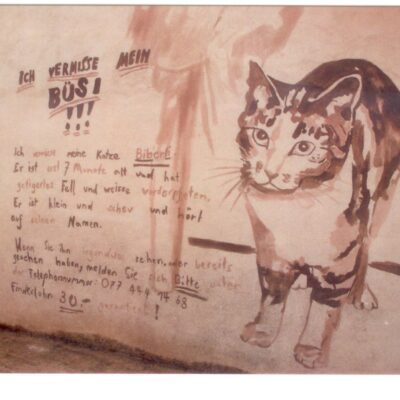 ICH VERMISSE MEIN
BÜSI
!!!
Ich vermisse meine Katze
Er ist erst 7 Monate alt und hat
getigertes Fell und weisse Vorderpfoten.
Er ist klein und scheu und hört
auf seinen Namen.
Wenn Sie ihn irgendwo sehen oder bereits
gesehen haben, melden Sie sich Bitte unter
der Telephonnummer: 077 444 74 68
Finderlohn 30.- garantiert!